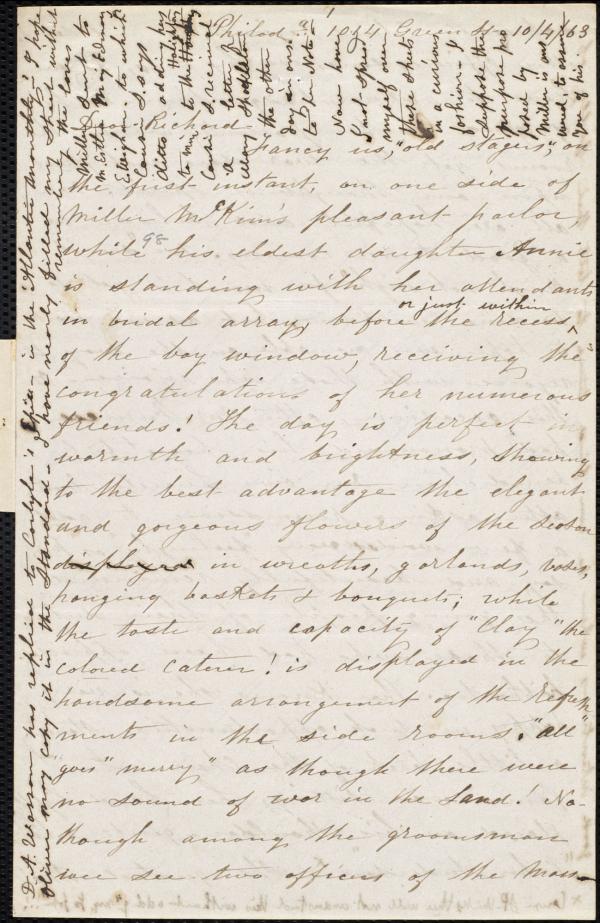 Philad.a 1024 Green St. 10/4/63
Dear Richard
Fancy us, "old stagers", on
the first instant, on one side of
Miller McKim's pleasant parlor,
98
while his eldest daughter Annie
is standing with her attendants
in bridal array, before the recess
or just within
of the bay window, receiving the
congratulations of her numerous
friends! The day is perfect in
warmth and brightness, showing
to the best advantage the elegant
and gorgeous flowers of the season
displayed in wreaths, garlands, vases,
hanging baskets & bouquets; while
the taste and capacity of "Clay" the
colored caterer! is displayed in the
handsome arrangement of the refresh
ments in the side rooms. "all
"goes" merry" as though there were
no sound of war in the Land! No-
though among the groomsmen
wee see two officers of the Mass-
Now here
I've sped
myself over
these sheets
in a curious
fashion- I
suppose the
purpose pro
posed by
Miller is ans
wered, to
you of his.
the love
Miller sent to
M. Estlin & Mr. & Mrs. Edmund
to which
I says
ditto adding my
to my
I received
a letter fr
Mary
the other
day in ans.
to her Note-
D. A. Wasson has replied to Carlyle's in the "Atlantic Monthly." I hope
Oliver may copy it in the Standard- I have nearly filled my Sheet without
remembering